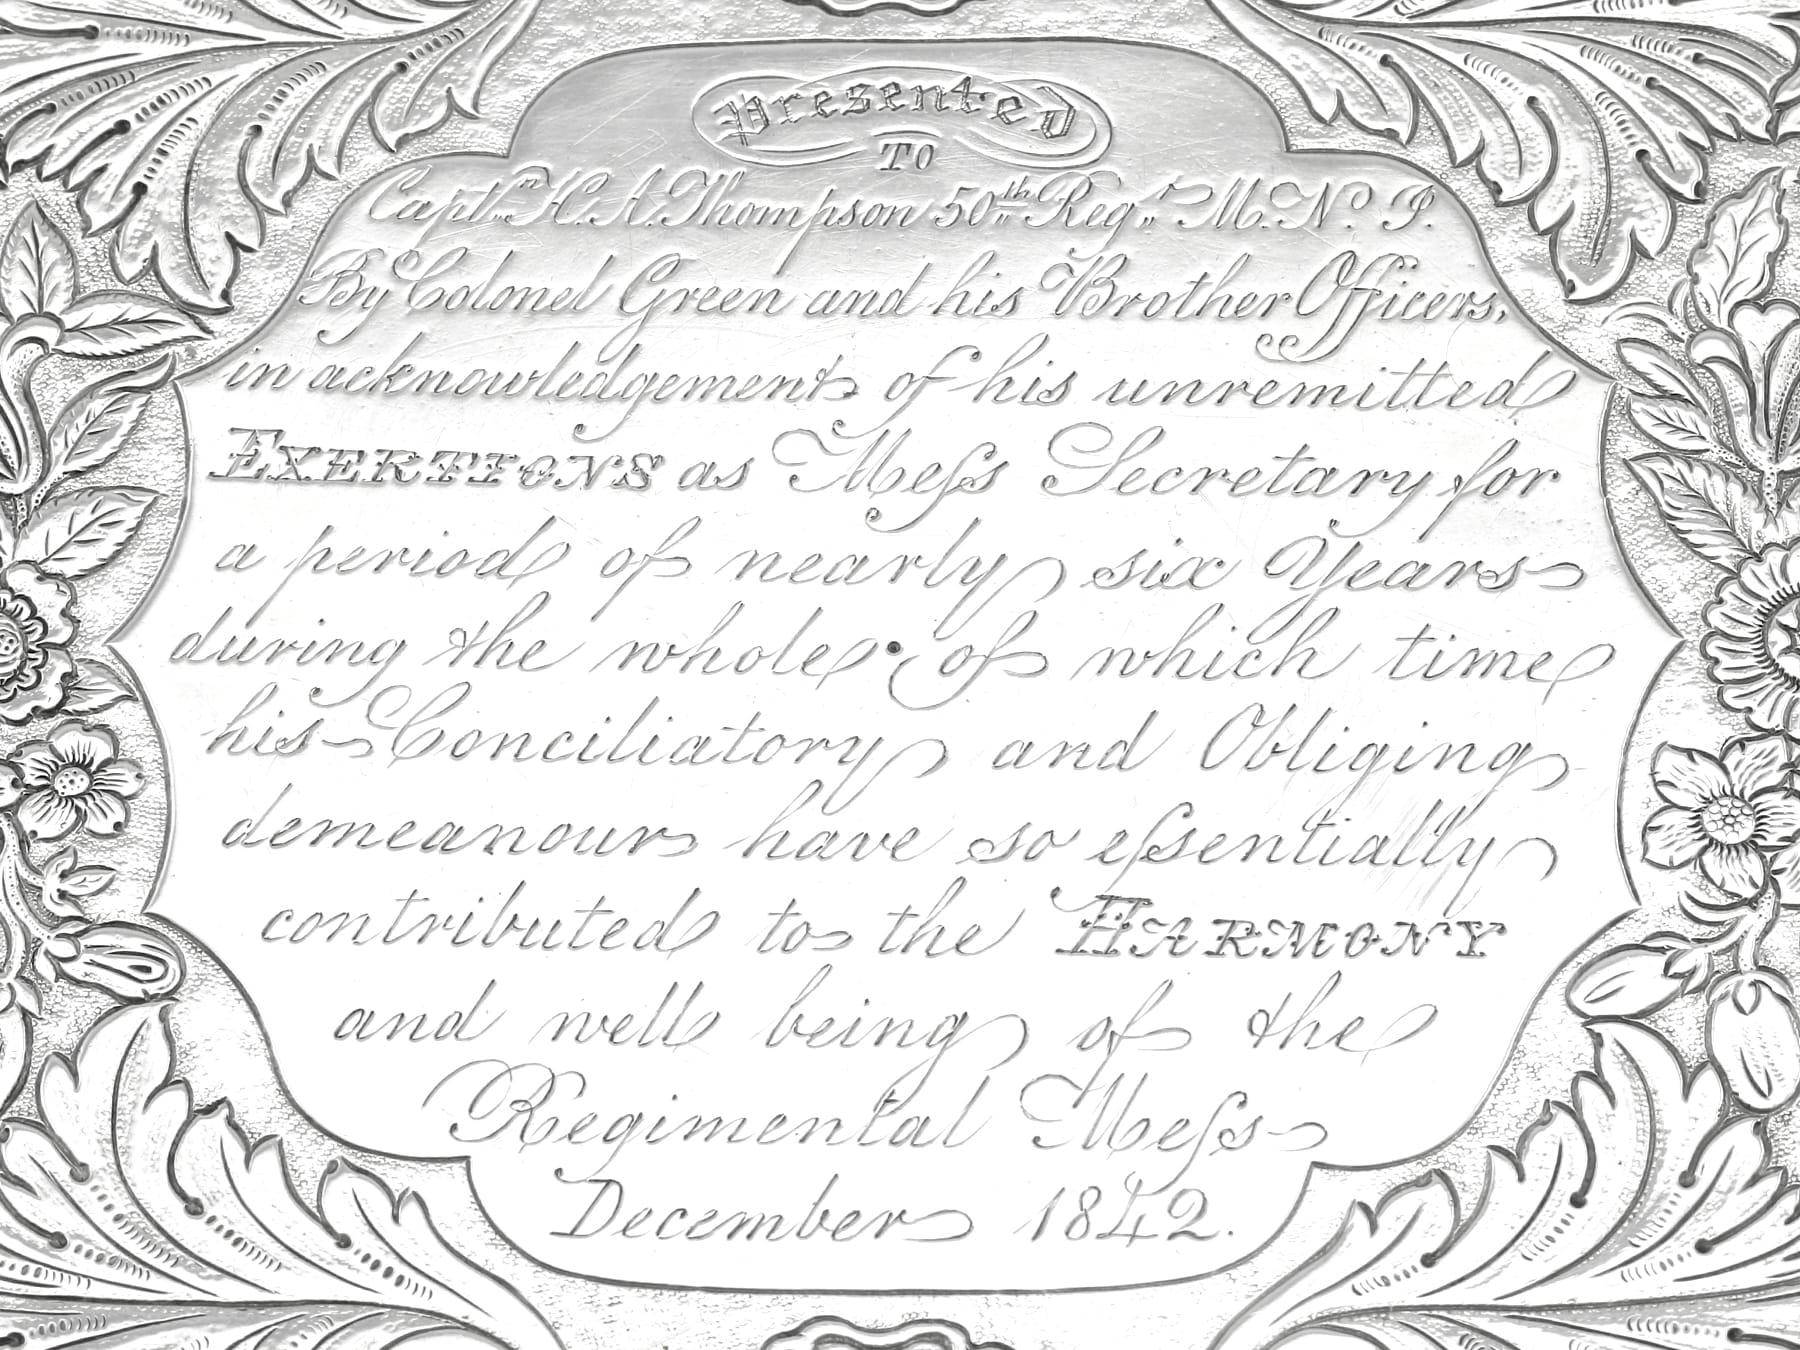 Presented
TO
Captn H. A. Thompson 50th Regt M. N. I.
By Colonel Green and his Brother Officers,
in acknowledgement of his unremitted
EXERTIONS as Meſs Secretary for
a period of nearly six Years
during the whole of which time
his Conciliatory and Obliging
demeanour have so eſsentially
contributed to the HARMONY
and well being of the
Regimental Meſs
December 1842.